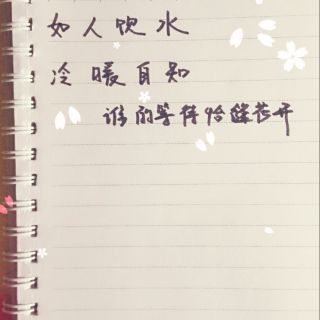 如人饮水
冷暖自知
谁的等待恰逢花开